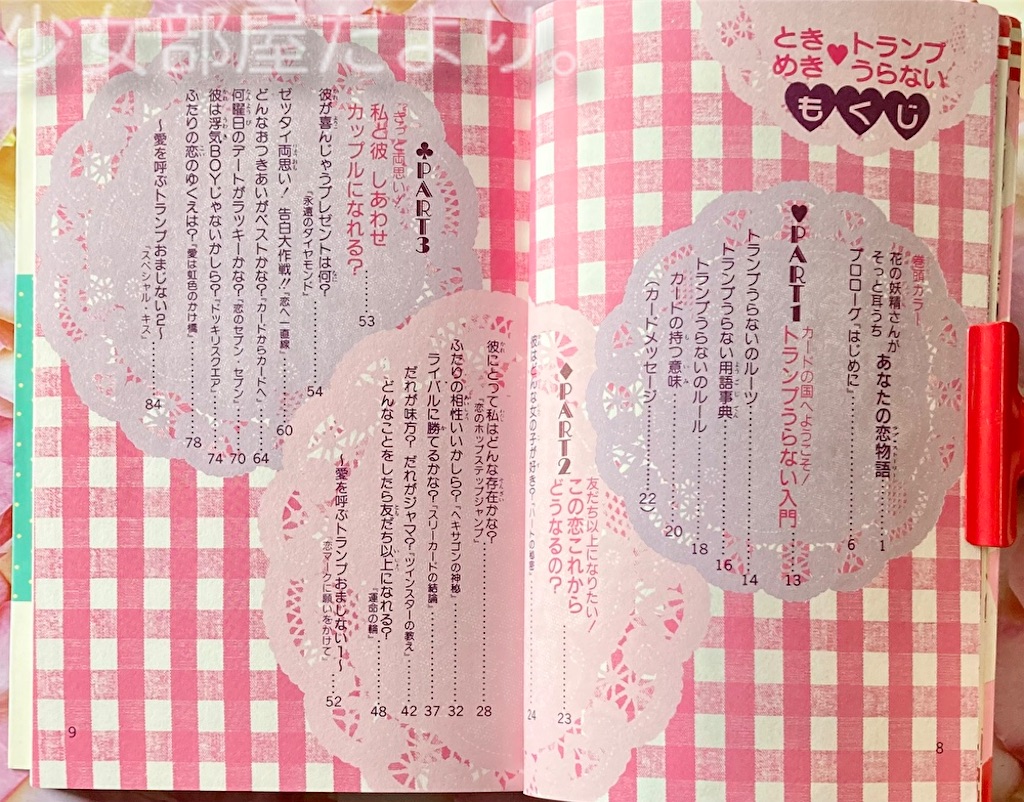 少女部屋だより。
ときめき♥トランプうらない
もくじ
巻頭カラー
花の妖精さんが
そっと耳うち あなたの恋物語……1
プロローグ「はじめに」……6
♥PART1
カードの国へようこそ!
トランプうらない入門……13
トランプうらないのルーツ……14
トランプうらない用語事典……16
トランプうらないのルール……18
カードの持つ意味……20
(カードメッセージ……22)
♦PART2
友だち以上になりたい!
この恋これから
どうなるの?……23
彼はどんな女の子が好き?「ハートの秘密」……24
彼にとって私はどんな存在かな?
「恋のホップステップジャンプ」……28
ふたりの相性いいかしら?「ヘキサゴンの神秘」……32
ライバルに勝てるかな?「スリーカードの結論」……37
だれが味方? だれがジャマ?「ツインスターの教え」……42
どんなことをしたら友だち以上になれる?
「運命の輪」……48
~愛を呼ぶトランプおまじない1~
恋マークに願いをかけて……52
♣PART3
きっと両思い!
私と彼 しあわせ
カップルになれる?……53
彼が喜んじゃうプレゼントは何?
「永遠のダイヤモンド」……54
ゼッタイ両思い! 告白大作戦!!「恋へ一直線」……60
どんなおつきあいがベストかな?「カードからカードへ」……64
何曜日のデートがラッキーかな?「恋のセブン・セブン」……70
彼は浮気BOYじゃないかしら?「ドッキリスクエア」……74
ふたりの恋のゆくえは?「愛は虹色のかけ橋」……78
~愛を呼ぶトランプおまじない2~
「スペシャル・キス」……84
8
9